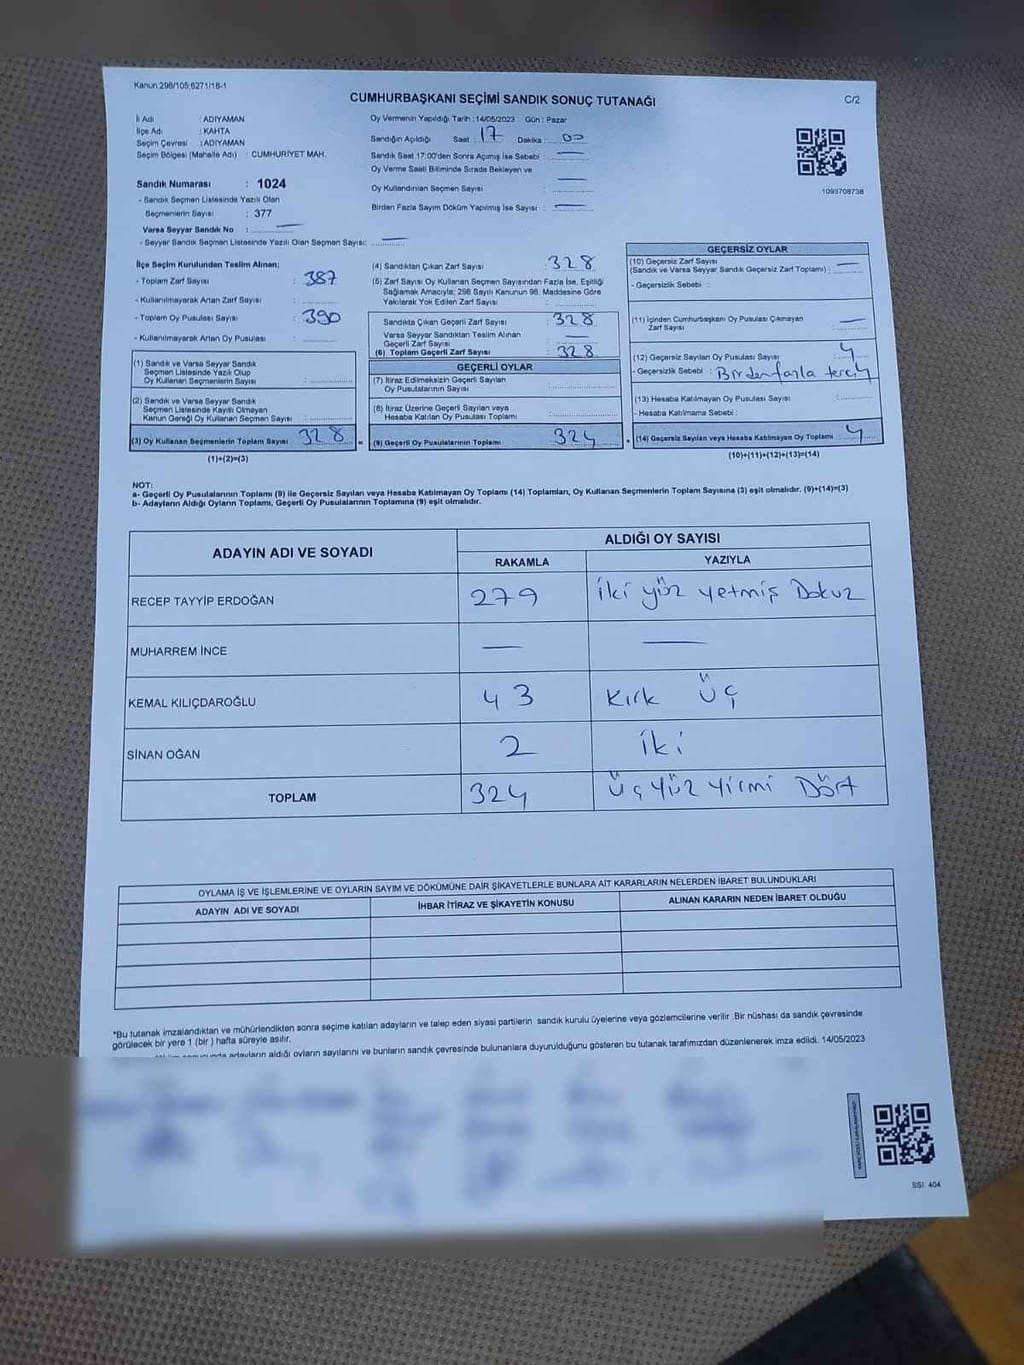 Kanun:298/105;6271/18-1
CUMHURBAŞKANI SEÇİMİ SANDIK SONUÇ TUTANAĞI
C/2
İl Adı : ADIYAMAN
İlçe Adı : KAHTA
Seçim Çevresi : ADIYAMAN
Seçim Bölgesi (Mahalle Adı) : CUMHURİYET MAH.
Sandık Numarası : 1024
- Sandık Seçmen Listesinde Yazılı Olan
Seçmenlerin Sayısı : 377
Varsa Seyyar Sandık No :
- Seyyar Sandık Seçmen Listesinde Yazılı Olan Seçmen Sayısı:
Oy Vermenin Yapıldığı Tarih : 14/05/2023 Gün : Pazar
Sandığın Açıldığı Saat : 17 Dakika : 00
Sandık Saat 17:00'den Sonra Açımış İse Sebebi :
Oy Verme Saati Bitiminde Sırada Bekleyen ve
Oy Kullandırılan Seçmen Sayısı :
Birden Fazla Sayım Döküm Yapılmış İse Sayısı :
1093708738
İlçe Seçim Kurulundan Teslim Alınan;
- Toplam Zarf Sayısı : 387
- Kullanılmayarak Artan Zarf Sayısı :
- Toplam Oy Pusulası Sayısı : 390
- Kullanılmayarak Artan Oy Pusulası :
(1) Sandık ve Varsa Seyyar Sandık
Seçmen Listesinde Yazılı Olup
Oy Kullanan Seçmenlerin Sayısı :
(2) Sandık ve Varsa Seyyar Sandık
Seçmen Listesinde Kayıtlı Olmayan
Kanun Gereği Oy Kullanan Seçmen Sayısı :
(3) Oy Kullanan Seçmenlerin Toplam Sayısı : 328
(1)+(2)=(3)
(4) Sandıktan Çıkan Zarf Sayısı : 328
(5) Zarf Sayısı Oy Kullanan Seçmen Sayısından Fazla İse, Eşitliği
Sağlamak Amacıyla; 298 Sayılı Kanunun 98. Maddesine Göre
Yakılarak Yok Edilen Zarf Sayısı :
Sandıkta Çıkan Geçerli Zarf Sayısı : 328
Varsa Seyyar Sandıktan Teslim Alınan
Geçerli Zarf Sayısı :
(6) Toplam Geçerli Zarf Sayısı : 328
GEÇERLİ OYLAR
(7) İtiraz Edilmeksizin Geçerli Sayılan
Oy Pusulalarının Sayısı :
(8) İtiraz Üzerine Geçerli Sayılan veya
Hesaba Katılan Oy Pusulası Toplamı :
= (9) Geçerli Oy Pusulalarının Toplamı : 324
GEÇERSİZ OYLAR
(10) Geçersiz Zarf Sayısı
(Sandık ve Varsa Seyyar Sandık Geçersiz Zarf Toplamı) :
- Geçersizlik Sebebi :
(11) İçinden Cumhurbaşkanı Oy Pusulası Çıkmayan
Zarf Sayısı :
(12) Geçersiz Sayılan Oy Pusulası Sayısı : 4
- Geçersizlik Sebebi : Birden fazla tercih
(13) Hesaba Katılmayan Oy Pusulası Sayısı :
- Hesaba Katılmama Sebebi :
+ (14) Geçersiz Sayılan veya Hesaba Katılmayan Oy Toplamı : 4
(10)+(11)+(12)+(13)=(14)
NOT:
a- Geçerli Oy Pusulalarının Toplamı (9) ile Geçersiz Sayılan veya Hesaba Katılmayan Oy Toplamı (14) Toplamları, Oy Kullanan Seçmenlerin Toplam Sayısına (3) eşit olmalıdır. (9)+(14)=(3)
b- Adayların Aldığı Oyların Toplamı, Geçerli Oy Pusulalarının Toplamına (9) eşit olmalıdır.
ADAYIN ADI VE SOYADI
ALDIĞI OY SAYISI
RAKAMLA YAZIYLA
RECEP TAYYİP ERDOĞAN 279 İki yüz yetmiş Dokuz
MUHARREM İNCE — —
KEMAL KILIÇDAROĞLU 43 Kırk Üç
SİNAN OĞAN 2 İki
TOPLAM 324 Üç yüz yirmi Dört
OYLAMA İŞ VE İŞLEMLERİNE VE OYLARIN SAYIM VE DÖKÜMÜNE DAİR ŞİKAYETLERLE BUNLARA AİT KARARLARIN NELERDEN İBARET BULUNDUKLARI
ADAYIN ADI VE SOYADI İHBAR İTİRAZ VE ŞİKAYETİN KONUSU ALINAN KARARIN NEDEN İBARET OLDUĞU
*Bu tutanak imzalandıktan ve mühürlendikten sonra seçime katılan adayların ve talep eden siyasi partilerin sandık kurulu üyelerine veya gözlemcilerine verilir .Bir nüshası da sandık çevresinde
görülecek bir yere 1 (bir ) hafta süreyle asılır.
adayların aldığı oyların sayılarını ve bunların sandık çevresinde bulunanlara duyurulduğunu gösteren bu tutanak tarafımızdan düzenlenerek imza edildi. 14/05/2023
SSI 404